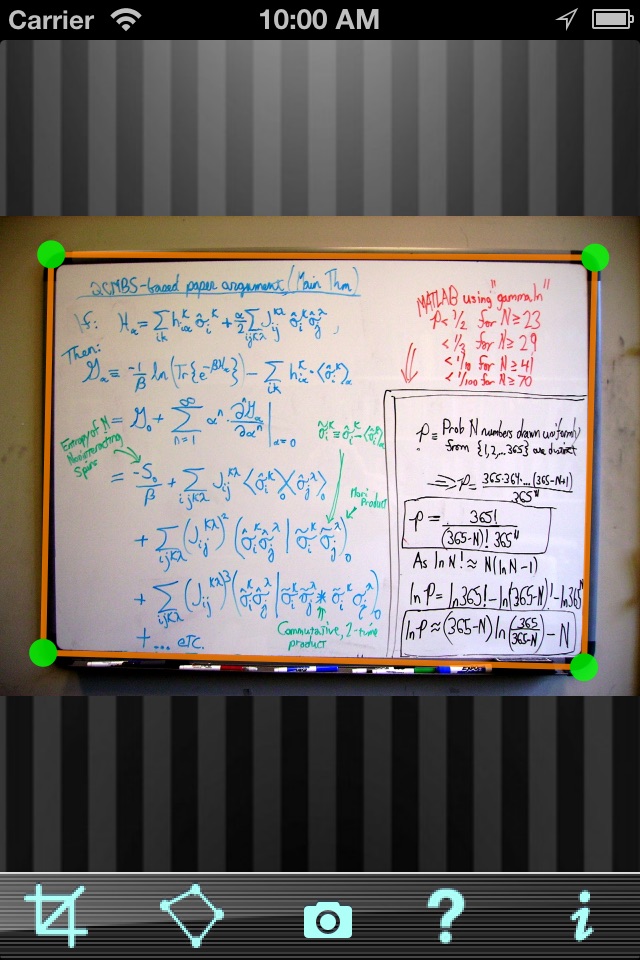 Carrier 10:00 AM
QCMBS-based paper argument (Main Thm)
If: H_α = Σ_{ik} h_{iα}^k σ̂_i^k + α/2 Σ_{ijkλ} J_{ij}^{kλ} σ̂_i^k σ̂_j^λ ,
Then:
G_α ≡ -1/β ln(Tr{e^{-βH_α}}) - Σ_{ik} h_{iα}^k ·⟨σ̂_i^k⟩_α
= G_0 + Σ_{n=1}^∞ α^n · ∂^n G_α/∂α^n |_{α=0}
Entropy of N
Noninteracting
Spins
= -S_0/β + Σ_{ijkλ} J_{ij}^{kλ} ⟨σ̂_i^k⟩⟨σ̂_j^λ⟩_0
σ̃_i^k ≡ σ̂_i^k - ⟨σ̂_i^k⟩_α
Mori
Product
+ Σ_{ijkλ} (J_{ij}^{kλ})^2 (σ̂_i^k σ̂_j^λ | σ̃_i^k σ̃_j^λ)_0
+ Σ_{ijkλ} (J_{ij}^{kλ})^3 (σ̂_i^k σ̂_j^λ | σ̃_i^k σ̃_j^λ * σ̃_i^k σ̃_j^λ)_0
Commutative, 2-time
product
+ ... etc.
MATLAB using "gammaln"
P < 1/2 for N ≥ 23
< 1/3 for N ≥ 29
< 1/10 for N ≥ 41
< 1/100 for N ≥ 70
P ≡ Prob N numbers drawn uniformly
from {1,2,...365} are distinct
⇒ P = 365·364·...(365-N+1)/365^N
P = 365!/(365-N)! 365^N
As ln N! ≈ N(ln N - 1)
ln P = ln 365! - ln(365-N)! - ln 365^N
ln P ≈ (365-N) ln(365/365-N) - N
EXPO